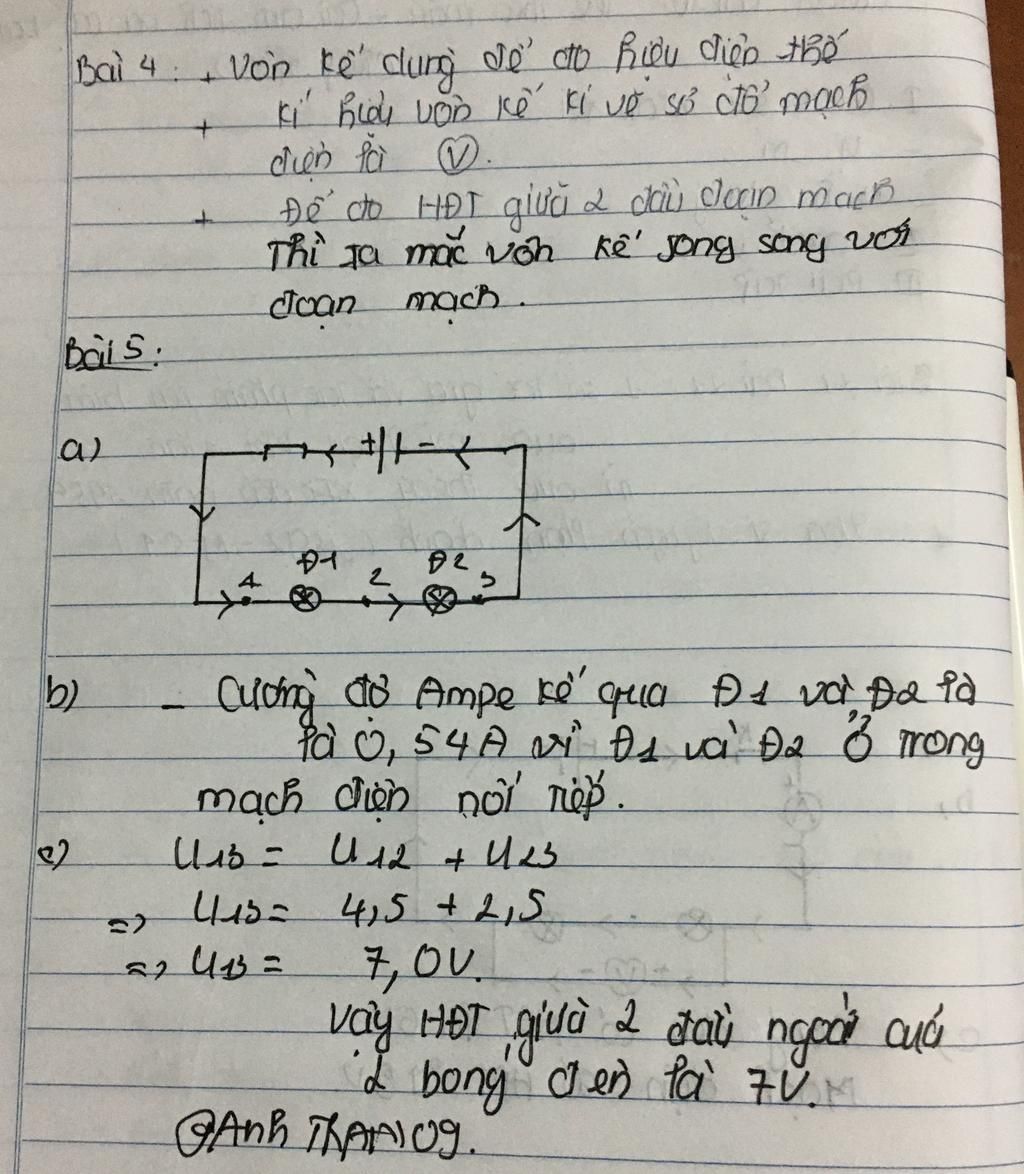 Bài 4: + Vôn kế dùng để đo hiệu điện thế
+ Kí hiệu vôn kế kí vẽ sơ đồ mạch
điện là Ⓥ.
+ Để đo HĐT giữa 2 đầu đoạn mạch
Thì ta mắc vôn kế song song với
đoạn mạch.
Bài 5:
a)
+ -
Đ1 Đ2
1 2 3
b) - Cường độ Ampe kế qua Đ1 và Đ2 là
là 0,54A vì Đ1 và Đ2 ở trong
mạch điện nối tiếp.
c) U13 = U12 + U23
=> U13 = 4,5 + 2,5
=> U13 = 7,0V.
Vậy HĐT giữa 2 đầu ngoài của
2 bóng đèn là 7V.